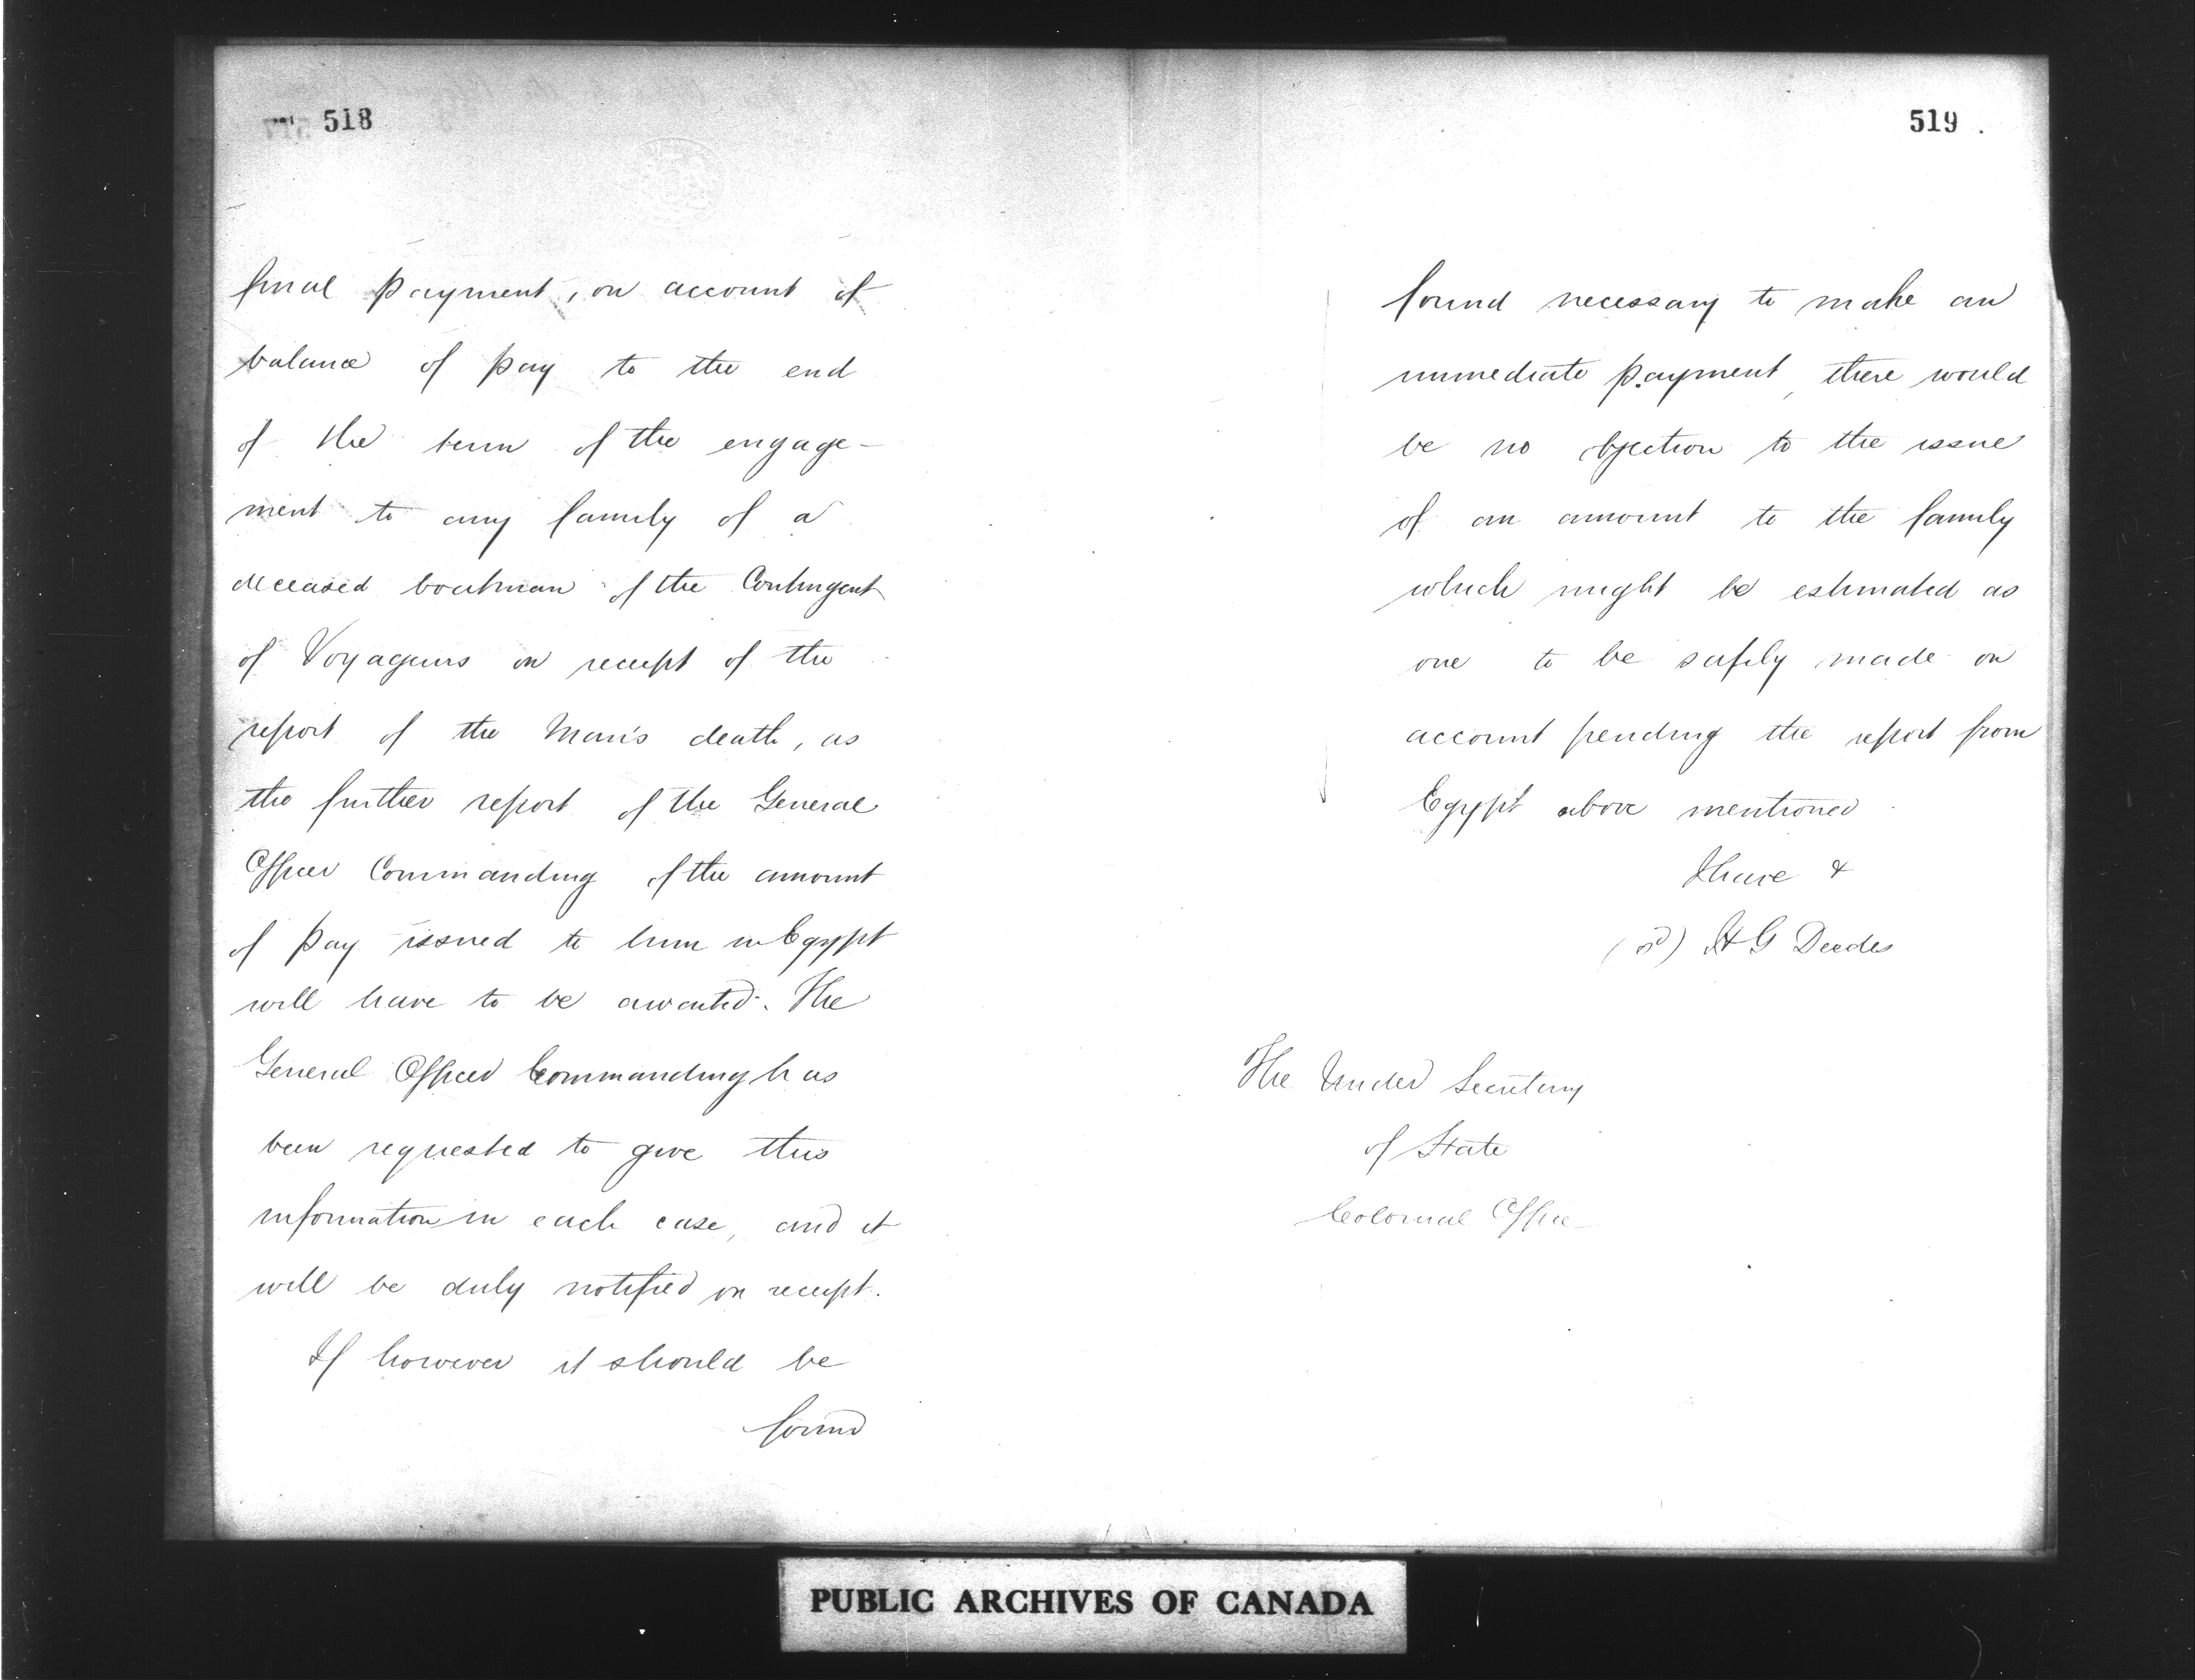 518
final payment, on account of
balance of pay to the end
of the term of the engage-
ment to any family of a
deceased boatman of the Contingent
of Voyageurs on receipt of the
report of the Man's death, as
the further report of the General
Officer Commanding of the amount
of pay issued to him in Egypt
will have to be awaited. The
General Officer Commanding has
been requested to give this
information in each case, and it
will be duly notified on receipt.
If however it should be
found
519
found necessary to make an
immediate payment, there would
be no objection to the issue
of an amount to the family
which might be estimated as
one to be safely made on
account pending the report from
Egypt above mentioned
I have &
(sd) H G Deedes
The Under Secretary
of State
Colonial Office
PUBLIC ARCHIVES OF CANADA